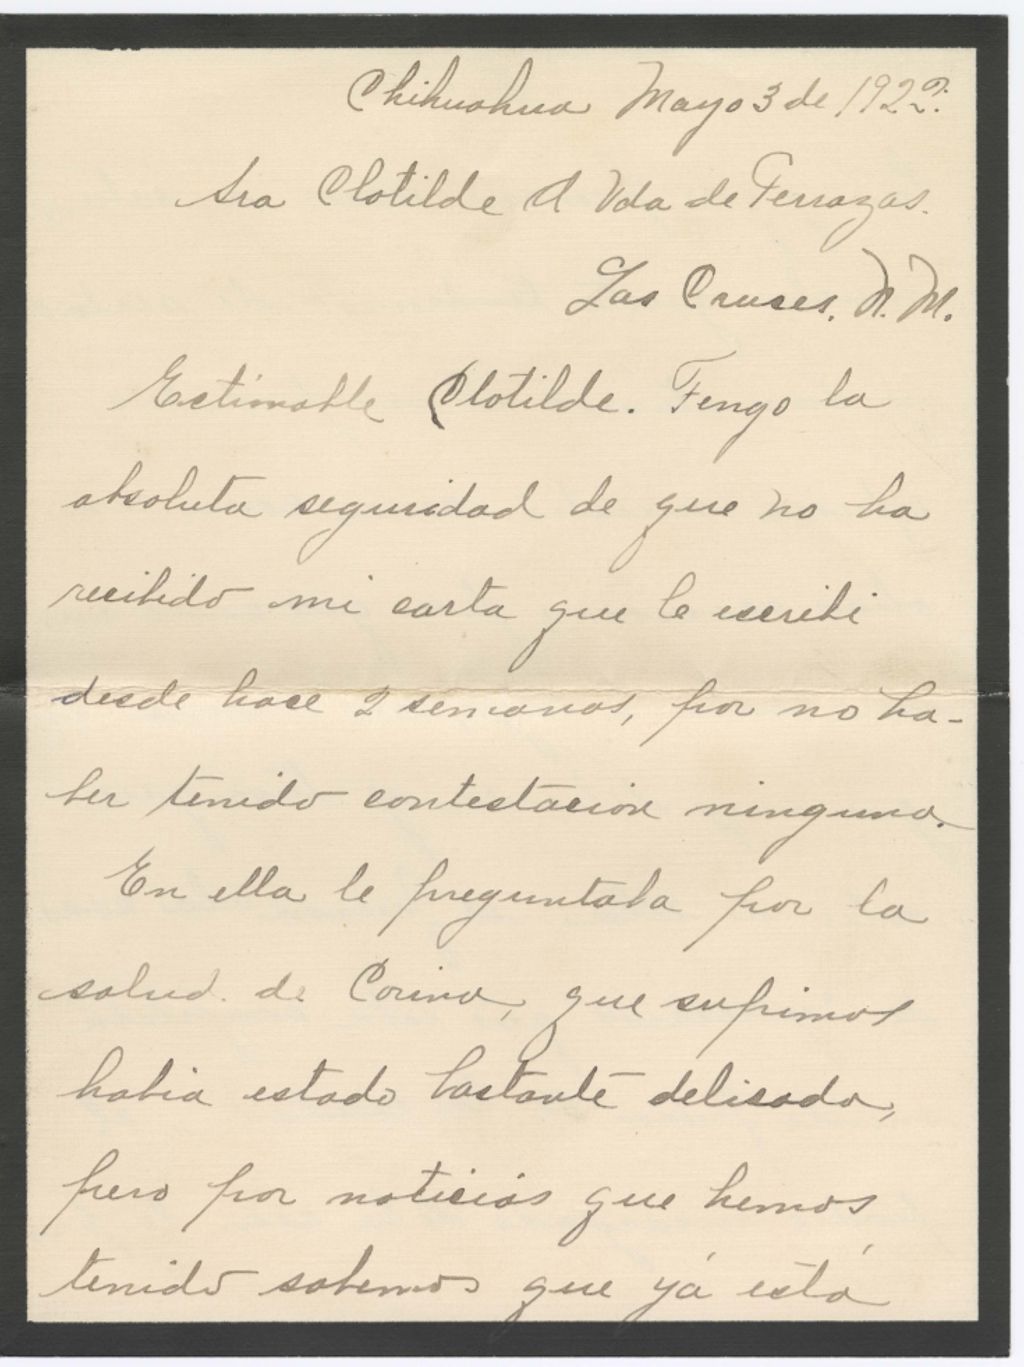 Chihuahua Mayo 3 de 1922.
Sra Clotilde A Vda de Terrazas.
Las Cruses. N. M.
Estimable Clotilde. Tengo la
absoluta seguridad de que no ha
recibido mi carta que le escribi
desde hace 2 semanas, por no ha-
ber tenido contestacion ninguna.
En ella le preguntaba por la
salud. de Corina, que supimos
habia estado bastante delisada,
pero por noticias que hemos
tenido sabemos que yá está